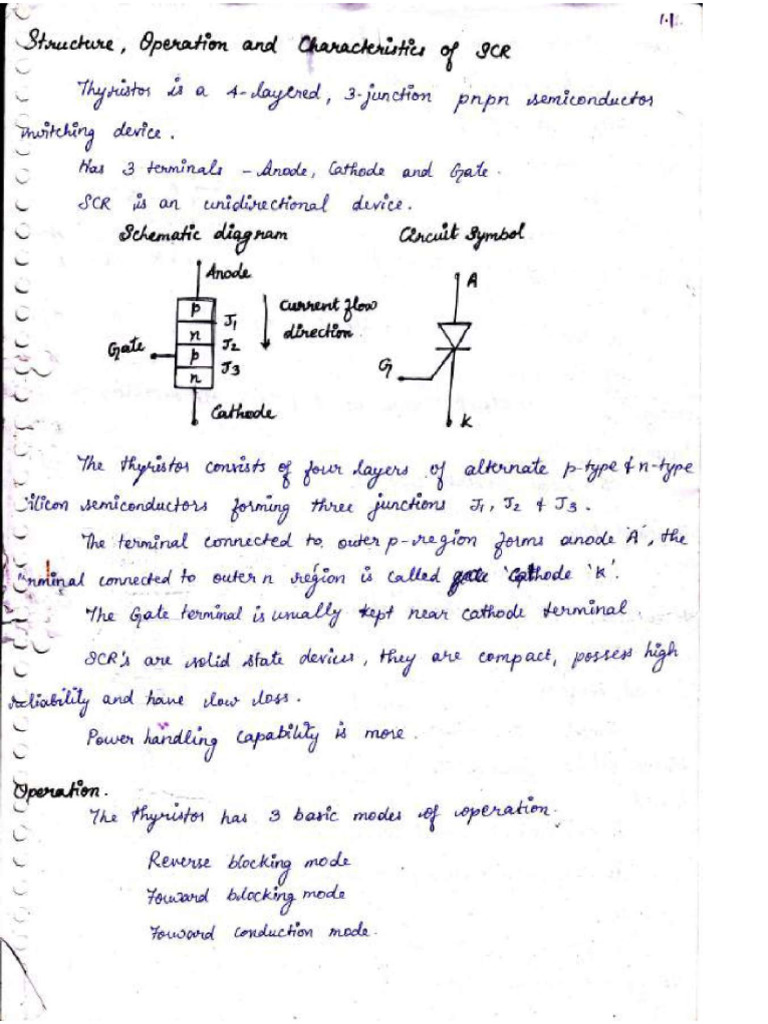 1.1.
Structure, Operation and Characteristics of SCR
Thyristor is a 4-layered, 3-junction pnpn semiconductor
switching device.
Has 3 terminals - Anode, Cathode and Gate.
SCR is an unidirectional device.
Schematic diagram Circuit Symbol
Anode A
p
J1
n
J2
Gate
p
J3
n
Current flow
direction
G
Cathode K
The thyristor consists of four layers of alternate p-type & n-type
silicon semiconductors forming three junctions J1, J2 & J3.
The terminal connected to outer p-region forms anode 'A', the
terminal connected to outer n region is called gate 'Cathode 'K'.
The Gate terminal is usually kept near cathode terminal.
SCR's are solid state devices, they are compact, possess high
reliability and have low loss.
Power handling capability is more.
Operation.
The thyristor has 3 basic modes of operation.
Reverse blocking mode
Forward blocking mode
Forward conduction mode.